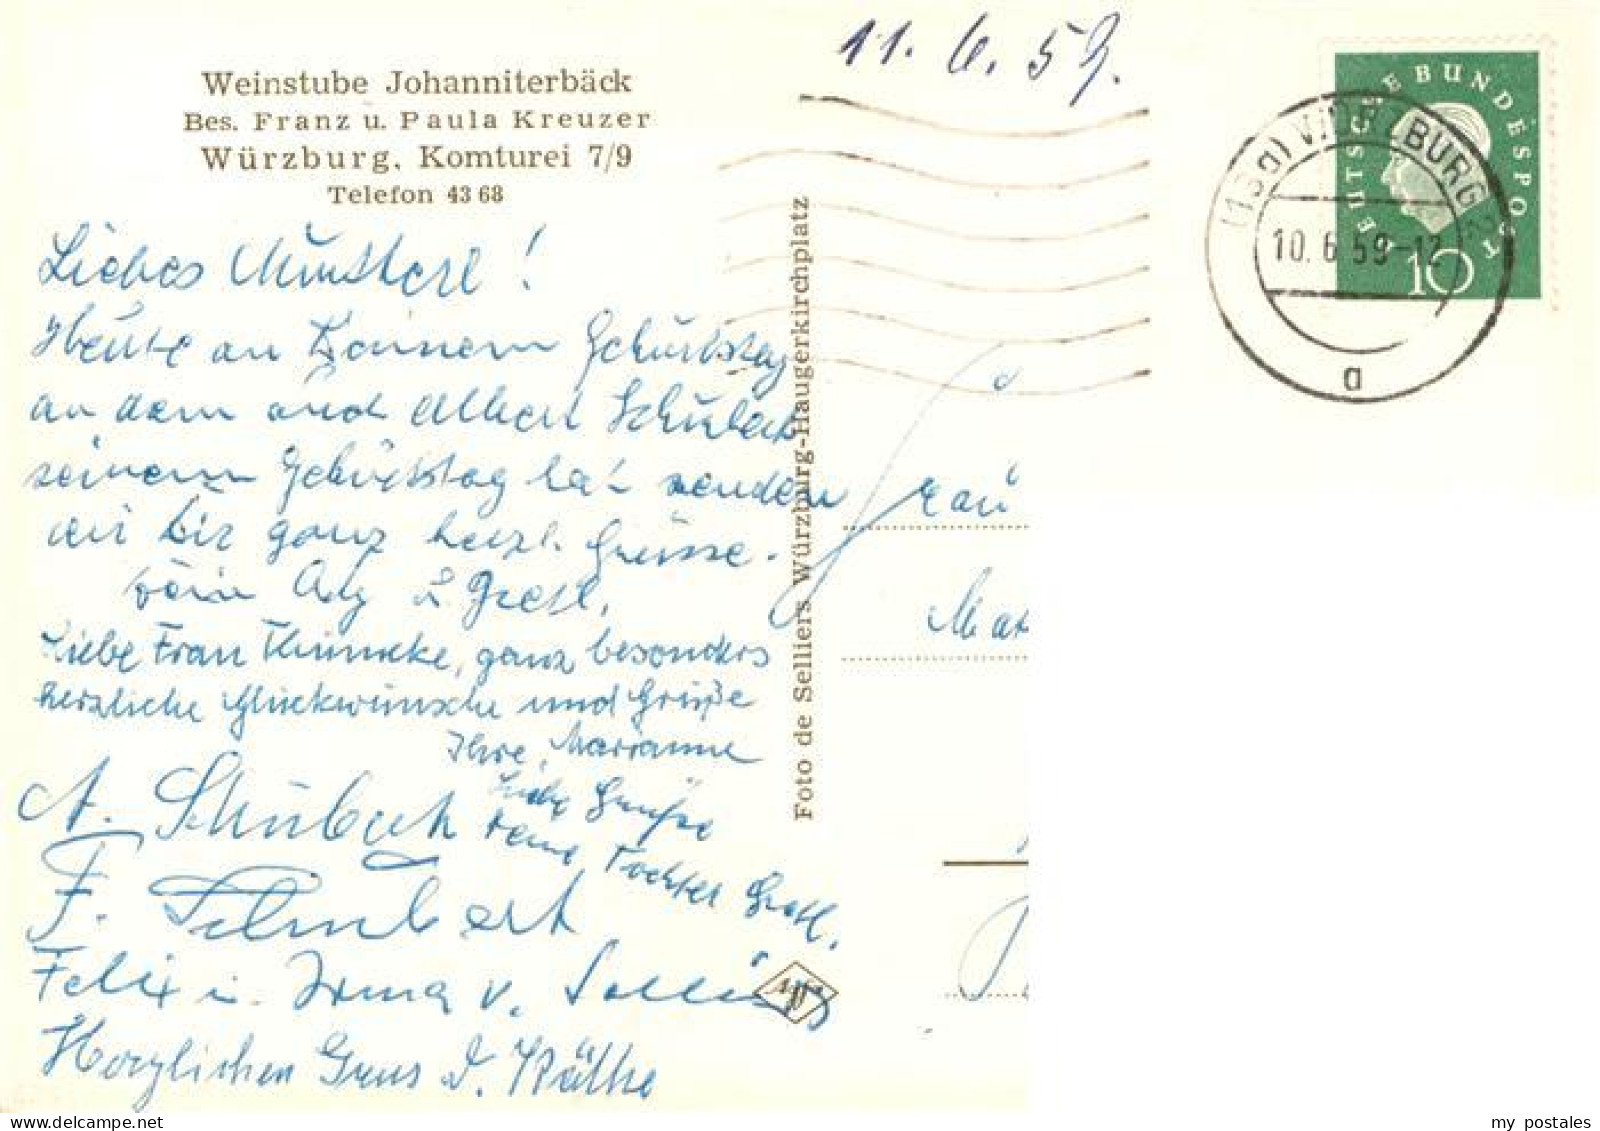 Weinstube Johanniterbäck
Bes. Franz u. Paula Kreuzer
Würzburg, Komturei 7/9
Telefon 43 68
11. 6. 59.
DEUTSCHE BUNDESPOST
10
(13a) WÜRZBURG 2
10. 6. 59-12
a
Liebes Mutterl!
Heute an Deinem Geburtstag
an dem auch Albert Schubert
seinem Geburtstag hat senden
wir Dir ganz herzl. Grüsse.
Dein & Gretl,
Liebe Frau ganz besonders
herzliche Glückwünsche und Grüße
Ihre Marianne
Liebe Grüße
Deine Tochter Gretl.
A.
F.
Felix u. Irma v.
Herzlichen Grus d. Käthe
Foto de Selliers Würzburg-Haugerkirchplatz
Frau
my postales